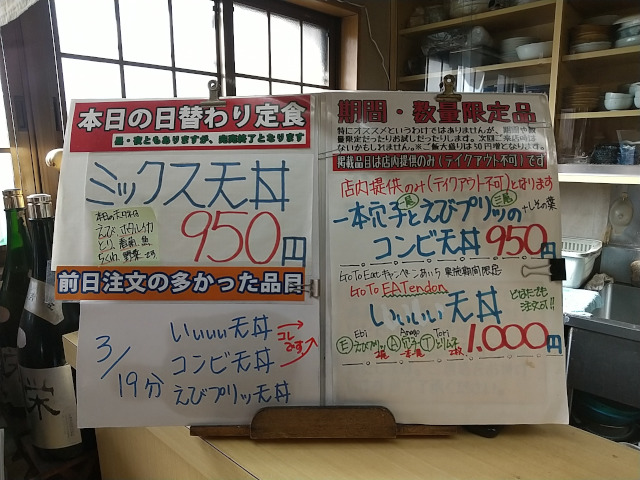 本日の日替わり定食
昼・夜ともありますが、売り切れ終了となります
ミックス天丼
本日のネタは
えび、ホタルイカ
とり、春菊、魚
ちくわ、野菜です
950円
前日注文の多かった品目
3/19分
いぃぃぃ天丼
コンビ天丼
えびプリッツ天丼
コレおす
期間・数量限定品
特にオススメというわけではありませんが、期間や数
量限定だったりお試しだったりします。次回ご来店時は
ないかもしれません。※ご飯大盛りは50円増となります。
掲載品目は店内提供のみ(テイクアウト不可)です
店内提供のみ(テイクアウト不可)となります
一本穴子と えびプリッツの
一尾 三尾
+しその葉
コンビ天丼 950円
Go To Eatキャンペーンあいち 実施期間限定
Go To EATendon
いぃぃぃ天丼
どなたでも
注文可!!
Ebi Anago Tori
Ⓔえびプリッツ Ⓐ穴子 Ⓣとりムネ
1,000円
栄